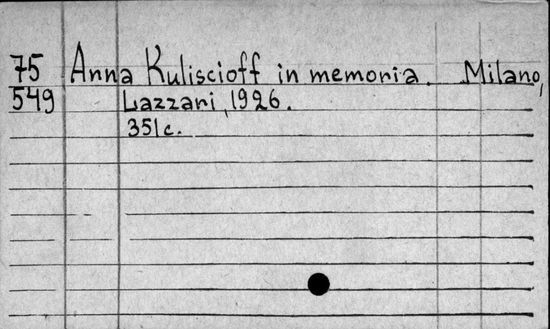 75 Anna Kuliscioff in memoria. Milano,
549 Lazzari, 1926.
351c.